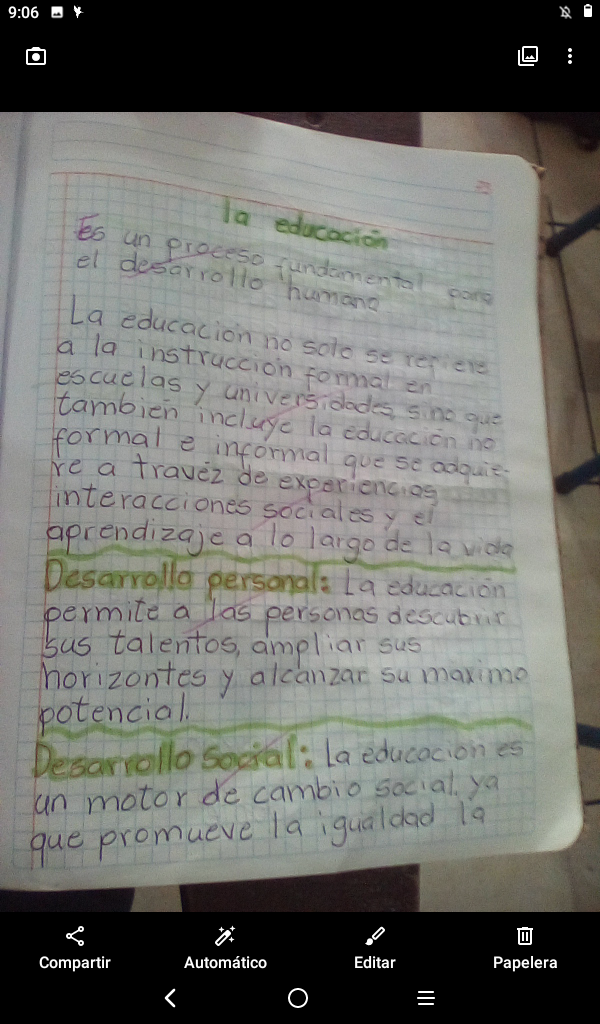 9:06
la educación
Es un proceso fundamental para
el desarrollo humano
La educación no solo se refiere
a la instrucción formal en
escuelas y universidades, sino que
tambien incluye la educación no
formal e informal que se adquie-
re a travéz de experiencias
interacciones sociales y el
aprendizaje a lo largo de la vida
Desarrollo personal: La educación
permite a las personas descubrir
sus talentos, ampliar sus
horizontes y alcanzar su maximo
potencial.
Desarrollo social: La educación es
un motor de cambio social, ya
que promueve la igualdad la
Compartir
Automático
Editar
Papelera